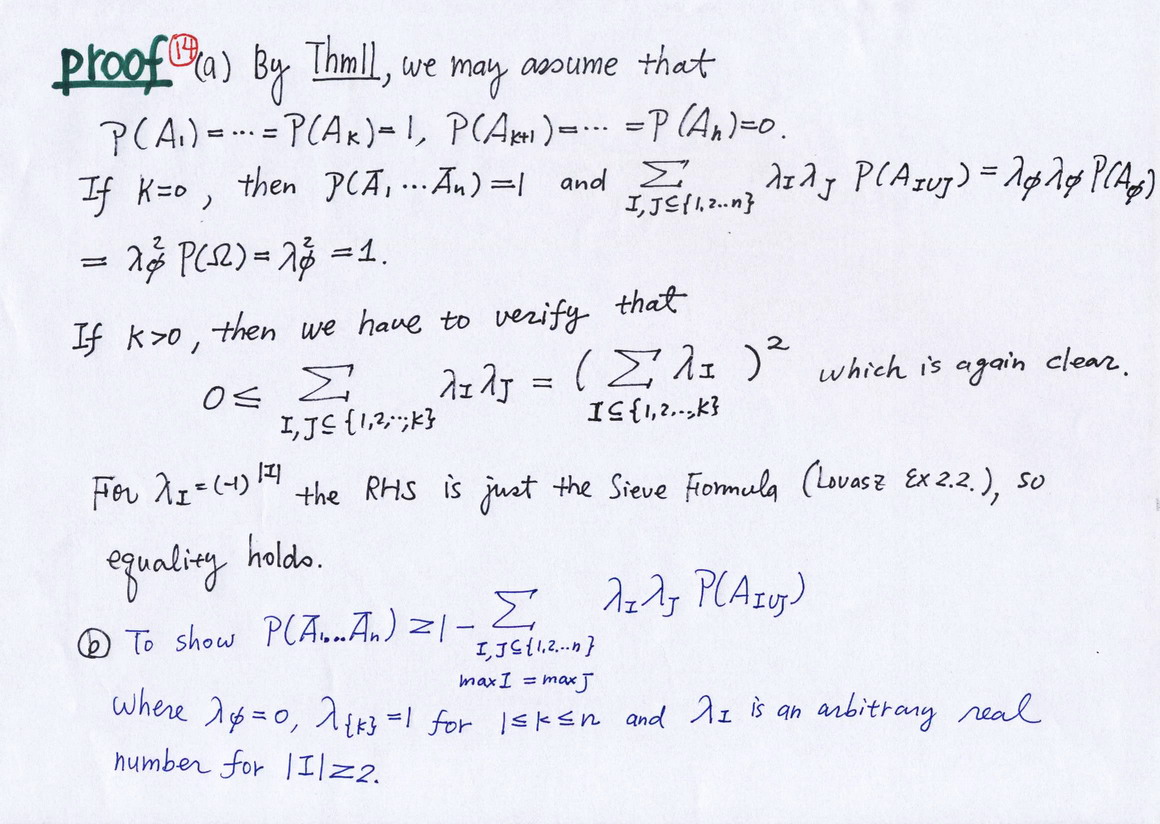 proof ⑭ (a) By Thm11, we may assume that
P(A₁) = ⋯ = P(A_K) = 1, P(A_{K+1}) = ⋯ = P(A_n) = 0.
If K=0, then P(Ā₁ ⋯ Ā_n) = 1 and Σ_{I,J⊆{1,2..n}} λ_I λ_J P(A_{I∪J}) = λ_∅ λ_∅ P(A_∅)
= λ_∅² P(Ω) = λ_∅² = 1.
If K>0, then we have to verify that
0 ≤ Σ_{I,J⊆{1,2,..,K}} λ_I λ_J = ( Σ_{I⊆{1,2,..,K}} λ_I )² which is again clear.
For λ_I = (-1)^{|I|} the RHS is just the Sieve Formula (Lovasz Ex 2.2.), so
equality holds.
ⓑ To show P(Ā₁...Ā_n) ≥ 1 − Σ_{I,J⊆{1,2,..n} max I = max J} λ_I λ_J P(A_{I∪J})
where λ_∅ = 0, λ_{{k}} = 1 for 1 ≤ k ≤ n and λ_I is an arbitrary real
number for |I| ≥ 2.